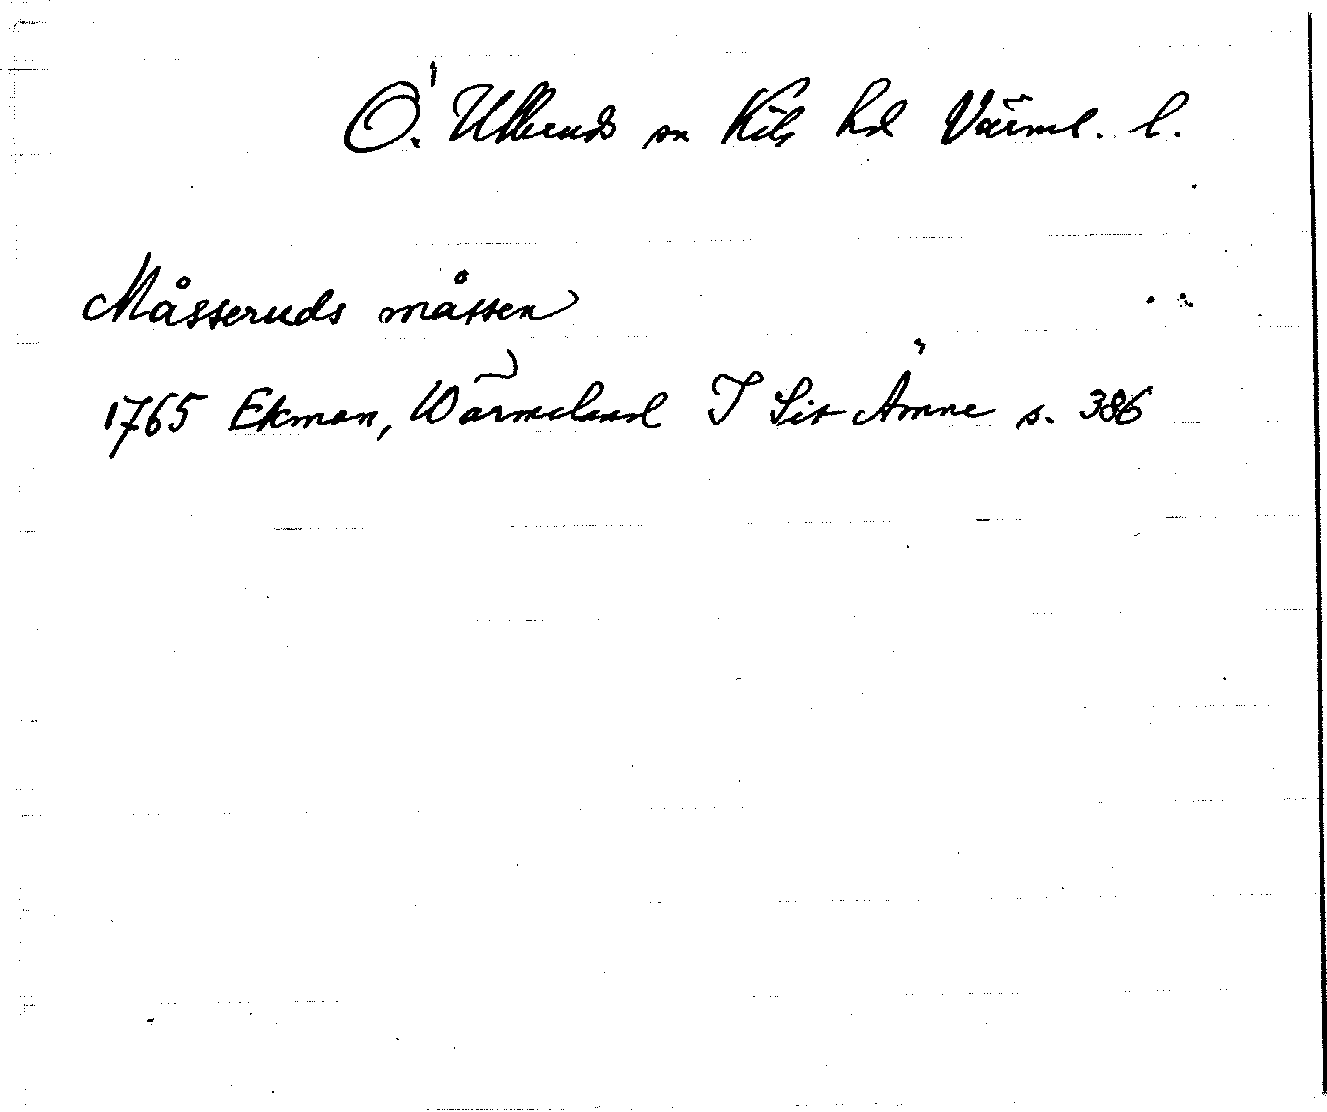 Ö. Ulleruds sn Kils hd Värml. l.
Måsseruds måssen
1765 Ekman, Wärmeland I Sit Ämne s. 386